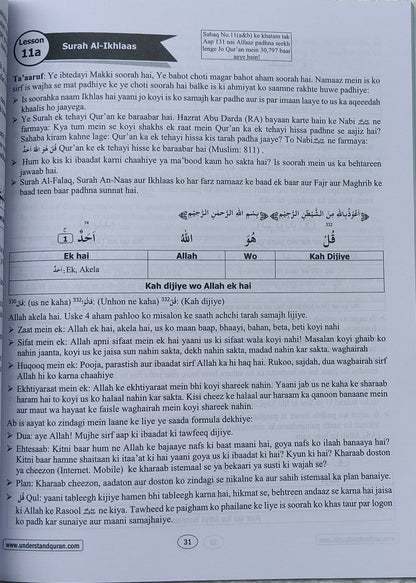 Lesson
11a
Surah Al-Ikhlaas
Sabaq No.11(a&b) ke khatam tak
Aap 131 nai Alfaaz padhna seekh
lenge Jo Qur'an mein 30,797 baar
aaye hain!
Ta'aaruf: Ye ibtedayi Makki soorah hai, Ye bahot choti magar bahot aham soorah hai. Namaaz mein is ko
sirf is wajha se mat padhiye ke ye choti soorah hai balke is ki ahmiyat ko saamne rakhte huwe padhiye:
➢ Is soorahka naam Ikhlas hai yaani jo koyi is ko samajh kar padhe aur is par imaan laaye to us ka aqeedah
khaalis ho jaayega.
➢ Ye Surah ek tehayi Qur'an ke baraabar hai. Hazrat Abu Darda (RA) bayaan karte hain ke Nabi ﷺ ne
farmaya: Kya tum mein se koyi shakhs ek raat mein Qur'an ka ek tehayi hissa padhne se aajiz hai?
Sahaba kiram kahne lage: Qur'an ka ek tehayi hissa kis tarah padha jaaye? To Nabi ﷺ ne farmaya:
قُلْ هُوَ اللهُ اَحَدٌ Qur'an ke ek tehayi hisse ke baraabar hai (Muslim: 811) .
➢ Hum ko kis ki ibaadat karni chaahiye ya ma'bood kaun ho sakta hai? Is soorah mein us ka behtareen
jawaab hai.
➢ Surah Al-Falaq, Surah An-Naas aur Ikhlaas ko har farz namaaz ke baad ek baar aur Fajr aur Maghrib ke
baad teen baar padhna sunnat hai.
اَعُوْذُ بِاللهِ مِنَ الشَّيْطٰنِ الرَّجِيْمِ بِسْمِ اللهِ الرَّحْمٰنِ الرَّحِيْمِ
332 74
قُلْ هُوَ اللهُ اَحَدٌ 1
Ek hai Allah Wo Kah Dijiye
اَحَدٌ: Ek, Akela
Kah dijiye wo Allah ek hai
530قَالَ: (us ne kaha) 332قَالُوْا: (Unhon ne kaha) 332قُلْ: (Kah dijiye)
Allah akela hai. Uske 4 aham pahloo ko misalon ke saath achchi tarah samajh lijiye.
➢ Zaat mein ek: Allah ek hai, akela hai, us ko maan baap, bhaayi, bahan, beta, beti koyi nahi
➢ Sifat mein ek: Allah apni sifaat mein ek hai yaani us ki sifaat wala koyi nahi! Masalan koyi ghaib ko
nahin jaanta, koyi us ke jaisa sun nahin sakta, dekh nahin sakta, madad nahin kar sakta. waghairah
➢ Huqooq mein ek: Pooja, parastish aur ibaadat sirf Allah ka hi haq hai. Rukoo, sajdah, dua waghairah sirf
Allah hi ko karna chaahiye
➢ Ekhtiyaraat mein ek: Allah ke ekhtiyaraat mein bhi koyi shareek nahin. Yaani jab us ne kaha ke sharaab
haram hai to koyi us ko halaal nahin kar sakta. Kisi cheez ke halaal aur haraam ka qanoon banaane mein
aur maut wa hayaat ke faisle waghairah mein koyi shareek nahin.
Ab is aayat ko zindagi mein laane ke liye ye saada formula dekhiye:
➢ Dua: aye Allah! Mujhe sirf aap ki ibaadat ki tawfeeq dijiye.
➢ Ehtesaab: Kitni baar hum ne Allah ke bajaaye nafs ki baat maani hai, goya nafs ko ilaah banaaya hai?
Kitni baar hamne shaitaan ki itaa'at ki hai yaani goya us ki ibaadat ki hai? Kyun ki hai? Kharaab doston
ya cheezon (Internet. Mobile) ke kharaab istemaal se ya bekaari ya susti ki wajah se?
➢ Plan: Kharaab cheezon, aadaton aur doston ko zindagi se nikalne ka aur sahih istemaal ka plan banaiye.
➢ قُلْ Qul: yaani tableegh kijiye hamen bhi tableegh karna hai, hikmat se, behtreen andaaz se karna hai jaisa
ki Allah ke Rasool ﷺ ne kiya. Tawheed ke paigham ko phailane ke liye is soorah ko khas taur par logon
ko padh kar sunaiye aur maani samajhaiye.
www.understandquran.com
31
www.understandquran.com